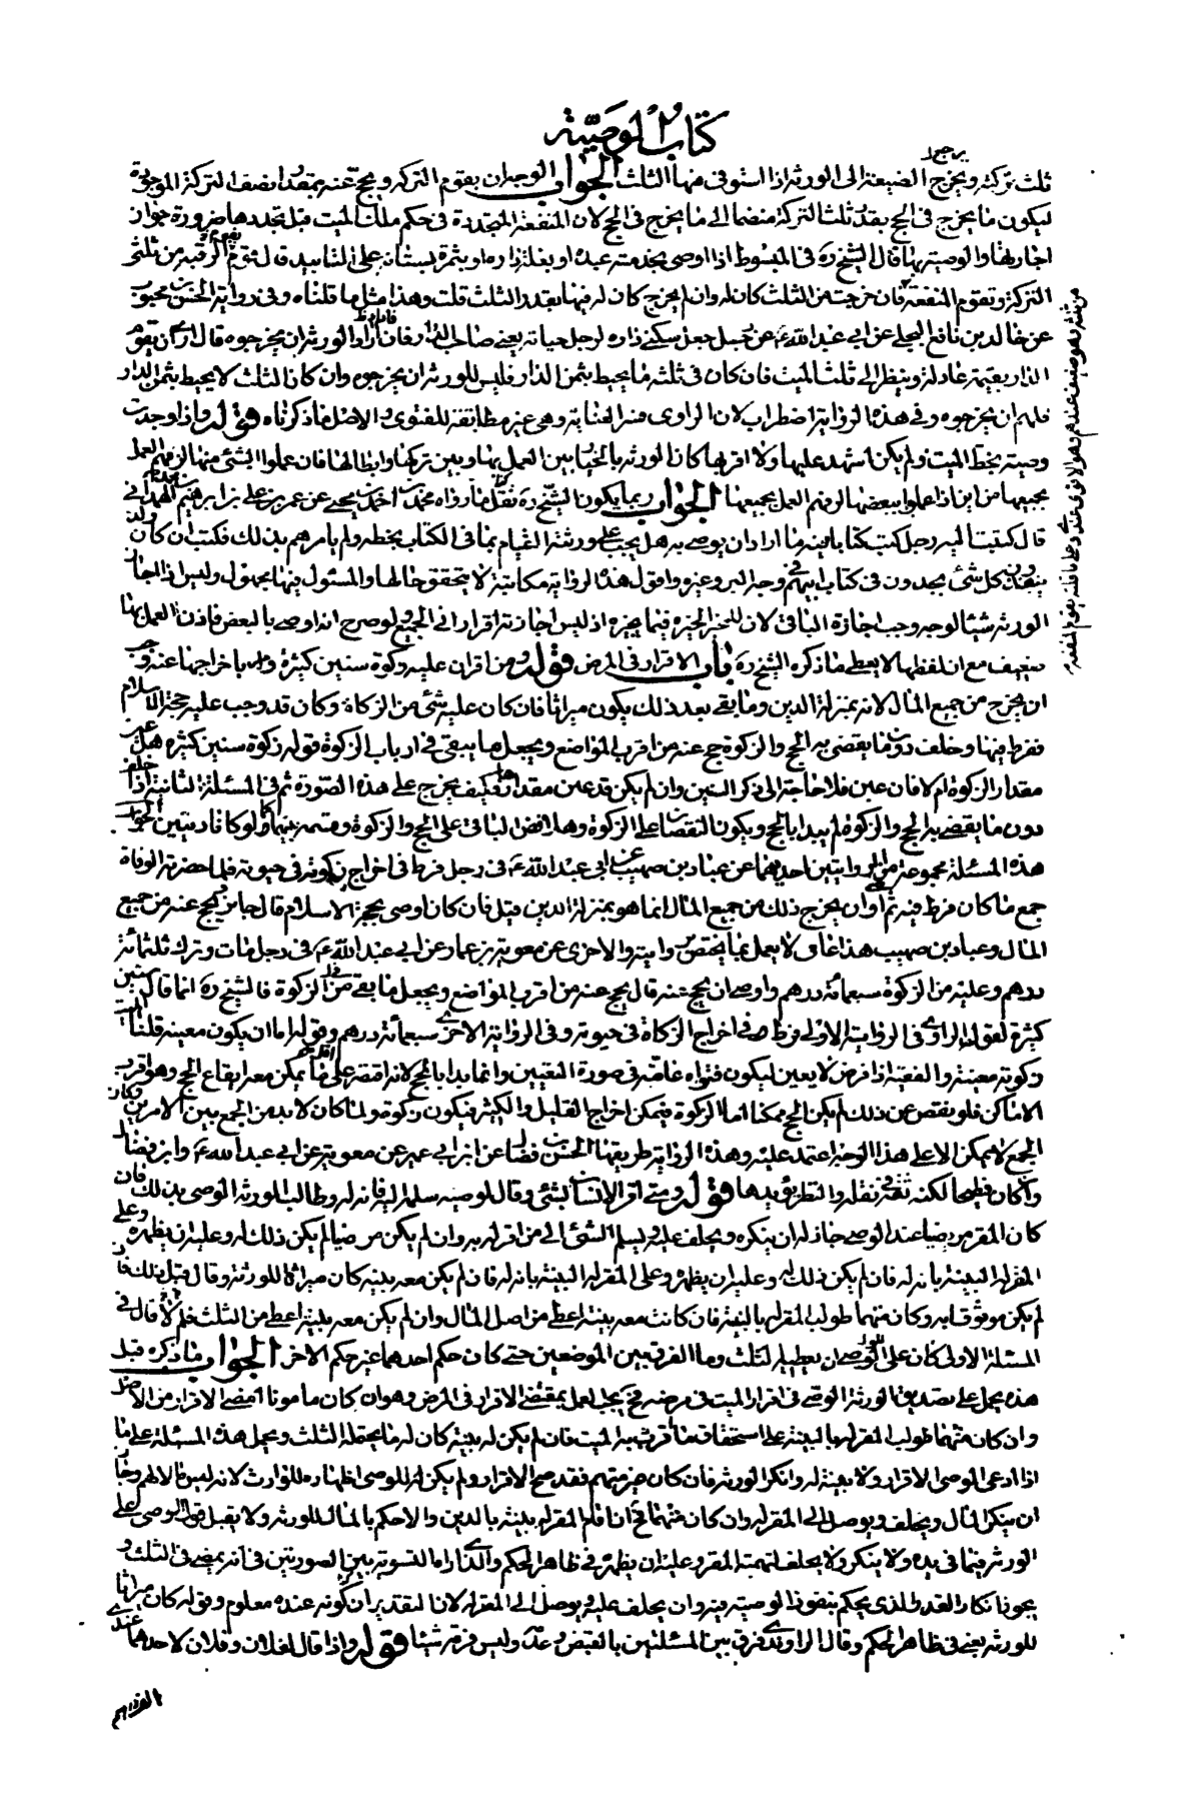 كتاب الوصية
يرجع
ثلث تركته ويخرج الضيعة الى الورثة اذا استوفى منها الثلث الجواب الوجه ان يقوم التركه ويحج عنه بمقدار نصف التركة الموجودة
ليكون ما يخرج فى الحج بقدر ثلث التركة منضما الى ما يخرج فى الحج لان المنفعة المتجددة فى حكم ملك الميت قبل تجددها ضرورة جواز
اجارتها والوصية بها قال الشيخ ره فى المبسوط اذا اوصى بخدمة عبده او بغلة داره او بثمرة بستانه على التأبيد قال قوم يقوم الرقبة من ثلث
التركة وتقوم المنفعة فان خرجت من الثلث كان له وان لم يخرج كان له فيها بقدر الثلث قلت وهذا مثل ما قلناه وفى رواية الحسن بن محبوب
عن خالد بن نافع البجلى عن ابى عبد الله ع عن رجل جعل سكنى داره لرجل حياته يعنى صاحب الدار فان اراد الورثة ان يخرجوه قال ارى ان يقوم
الدار بقيمة عادلة وينظر الى ثلث الميت فان كان فى ثلثه ما يحيط بثمن الدار فليس للورثة ان يخرجوه وان كان الثلث لا يحيط بثمن الدار
فلهم ان يخرجوه وفى هذه الرواية اضطراب لان الراوى وهى غير مطابقة للفتوى والاصل ما ذكرناه قوله واذا وجدت
وصية بخط الميت ولم يكن اشهد عليها ولا اقر بها كان الورثة بالخيار بين العمل بها وبين تركها وابطالها فان عملوا بشئ منها لزمهم العمل
بجميعها من اين اذا عملوا ببعضها لزمهم العمل بجميعها الجواب ربما يكون الشيخ ره نقل ما رواه محمد بن احمد بن يحيى عن عمر بن على عن ابراهيم بن محمد الهمدانى
قال كتبت اليه رجل كتب كتابا فيه ما اراد ان يوصى به هل يجب على ورثته القيام بما فى الكتاب بخطه ولم يامرهم بذلك فكتب ان كان ولده
ينفذون كل شئ يجدون فى كتاب ابيهم فى وجه البر وغيره واقول هذه الرواية مكاتبة لا يتحقق حالها والمسئول فيها مجهول وليس اذا اجاز
الورثة شيئا لوجه وجب اجازة الباقى لان للمخير الخيرة فيما يخيره اذ ليس اجازته اقرارا فى الجميع ولو صرح انه اوصى بالبعض فاذن العمل بها
ضعيف مع ان لفظها لا يعطى ما ذكره الشيخ ره باب الاقرار فى المرض قوله ومن اقر ان عليه زكوة سنين كثيرة وامر باخراجها عنه وجب
ان يخرج من جميع المال لانه بمنزلة الدين وما بقى بعد ذلك يكون ميراثا فان كان عليه شئ من الزكاة وكان قد وجب عليه حجة الاسلام
ففرط فيها وخلف دون ما يقضى به الحج والزكوة حج عنه من اقرب المواضع ويجعل ما يبقى فى ارباب الزكوة قوله زكوة سنين كثيرة هل عين
مقدار الزكوة ام لا فان عين فلا حاجة الى ذكر السنين وان لم يكن قد عين مقدارها فكيف يخرج على هذه الصورة ثم فى المسئلة الثانية اذا خلف
دون ما يقضى به الحج والزكوة لم يبدأ بالحج ويكون النقصان على الزكوة وهلا قضى الباقى على الحج والزكوة وقسمه بينهما كما لو كانا دينين الجواب
هذه المسئلة مجموعة من الروايتين احديهما عن عباد بن صهيب عن ابى عبد الله ع فى رجل فرط فى اخراج زكوته فى حيوته فلما حضرته الوفاة
جمع ما كان فرط فيه ثم اوصى ان يخرج ذلك من جميع المال انما هو بمنزلة الدين قيل فان كان اوصى بحجة الاسلام قال جايز يحج عنه من جميع
المال وعباد بن صهيب هذا عامى لا يعمل بما يختص بروايته والاخرى عن معوية بن عمار عن ابى عبد الله ع فى رجل مات وترك ثلثمائة
درهم وعليه من الزكوة سبعمائة درهم واوصى ان يحج عنه قال يحج عنه من اقرب المواضع ويجعل ما بقى فى الزكوة فالشيخ ره انما قال سنين
كثيرة لقول الراوى فى الرواية الاولى فرط فى اخراج الزكاة فى حيوته وفى الرواية الاخرى سبعمائة درهم وقوله اما ان يكون معينة قلنا
زكوته معينة والفقيه اذا فرض لا يعين ليكون فتواه عامة فى صورة التعيين وانما بدا بالحج لانه اقتصر على ما يمكن معه ايقاع الحج وهو اقرب
الاماكن فلو نقص عن ذلك لم يكن الحج ممكنا اما الزكوة فيمكن اخراج القليل والكثير فيكون زكوة ولما كان لا بد من الجمع بين الامرين وكان
الجمع لا يمكن الا على هذا الوجه اعتمد عليه وهذه الرواية طريقها الحسن بن فضال عن ابن ابى عمير عن معوية عن ابى عبد الله ع وابن فضال
وان كان فطحيا لكنه ثقة فى نقله والنظر يؤيدها قوله ومتى اقر الانسان بشئ وقال لوصيه سلمه اليه فانه له وطالب الورثة الوصى بذلك فان
كان المقر مرضيا عند الوصى جاز له ان ينكره ويحلف عليه ويسلم الشئ الى من اقر له به وان لم يكن مرضيا لم يكن ذلك له وعليه ان يظهره وعلى
المقر له البينة بانه له فان لم يكن ذلك له وعليه ان يظهره وعلى المقر له البينة بانه له فان لم يكن معه بينة كان ميراثا للورثة وقال قبل ذلك فان
لم يكن موثوقا به وكان متهما طولب المقر له بالبينة فان كانت معه بينة اعطى من اصل المال وان لم يكن معه بينة اعطى من الثلث فلم لا قال فى
المسئلة الاولى كان على الوصى ان يعطيه الثلث وما الفرق بين الموضعين حتى كان حكم احدهما غير حكم الاخر الجواب ما ذكره قبل
هذه يحمل على تصديق الورثة الوصى فى اقرار الميت فى مرضه فح يجب العمل بمقتضى الاقرار فى المرض وهو ان كان مامونا امضى الاقرار من الاصل
وان كان متهما طولب المقر له بالبينة على استحقاق ما اقر به الميت فان لم يكن له بينة كان له ما يحتمله الثلث ويحمل هذه المسئلة على ما
اذا ادعى الموصى الاقرار ولا بينة له وانكر الورثة فان كان غير متهم فقد صح الاقرار ولم يكن للوصى اظهاره للوارث لانه ليس مالا لهم وجاز
ان ينكر المال ويحلف ويوصل الى المقر له وان كان متهما فح ان اقام المقر له بينة بالدين والا حكم بالمال للورثة ولا يقبل قول الوصى على
الورثة فيما فى يده ولا ينكر ولا يحلف لتهمة المقر وعليه ان يظهره فى ظاهر الحكم والذى اراه التسوية بين الصورتين فى انه يمضى فى الثلث و
يجوز انكار القدر الذى يحكم بنفوذ الوصية فيه وان يحلف عليه ويوصل الى المقر له لان التقدير ان كونه عنده معلوم وقوله كان ميراثا
للورثة يعنى فى ظاهر الحكم وقال الراوندى فرق بين المسئلتين بالقبض وعدمه وليس فرقه شيئا قوله واذا قال لفلان وفلان لاحدهما عندى
من ثلثه وهو ضعيف عندهم وهو الاقوى عندى وعلى ما قلته يقوم المنفعة
الف درهم